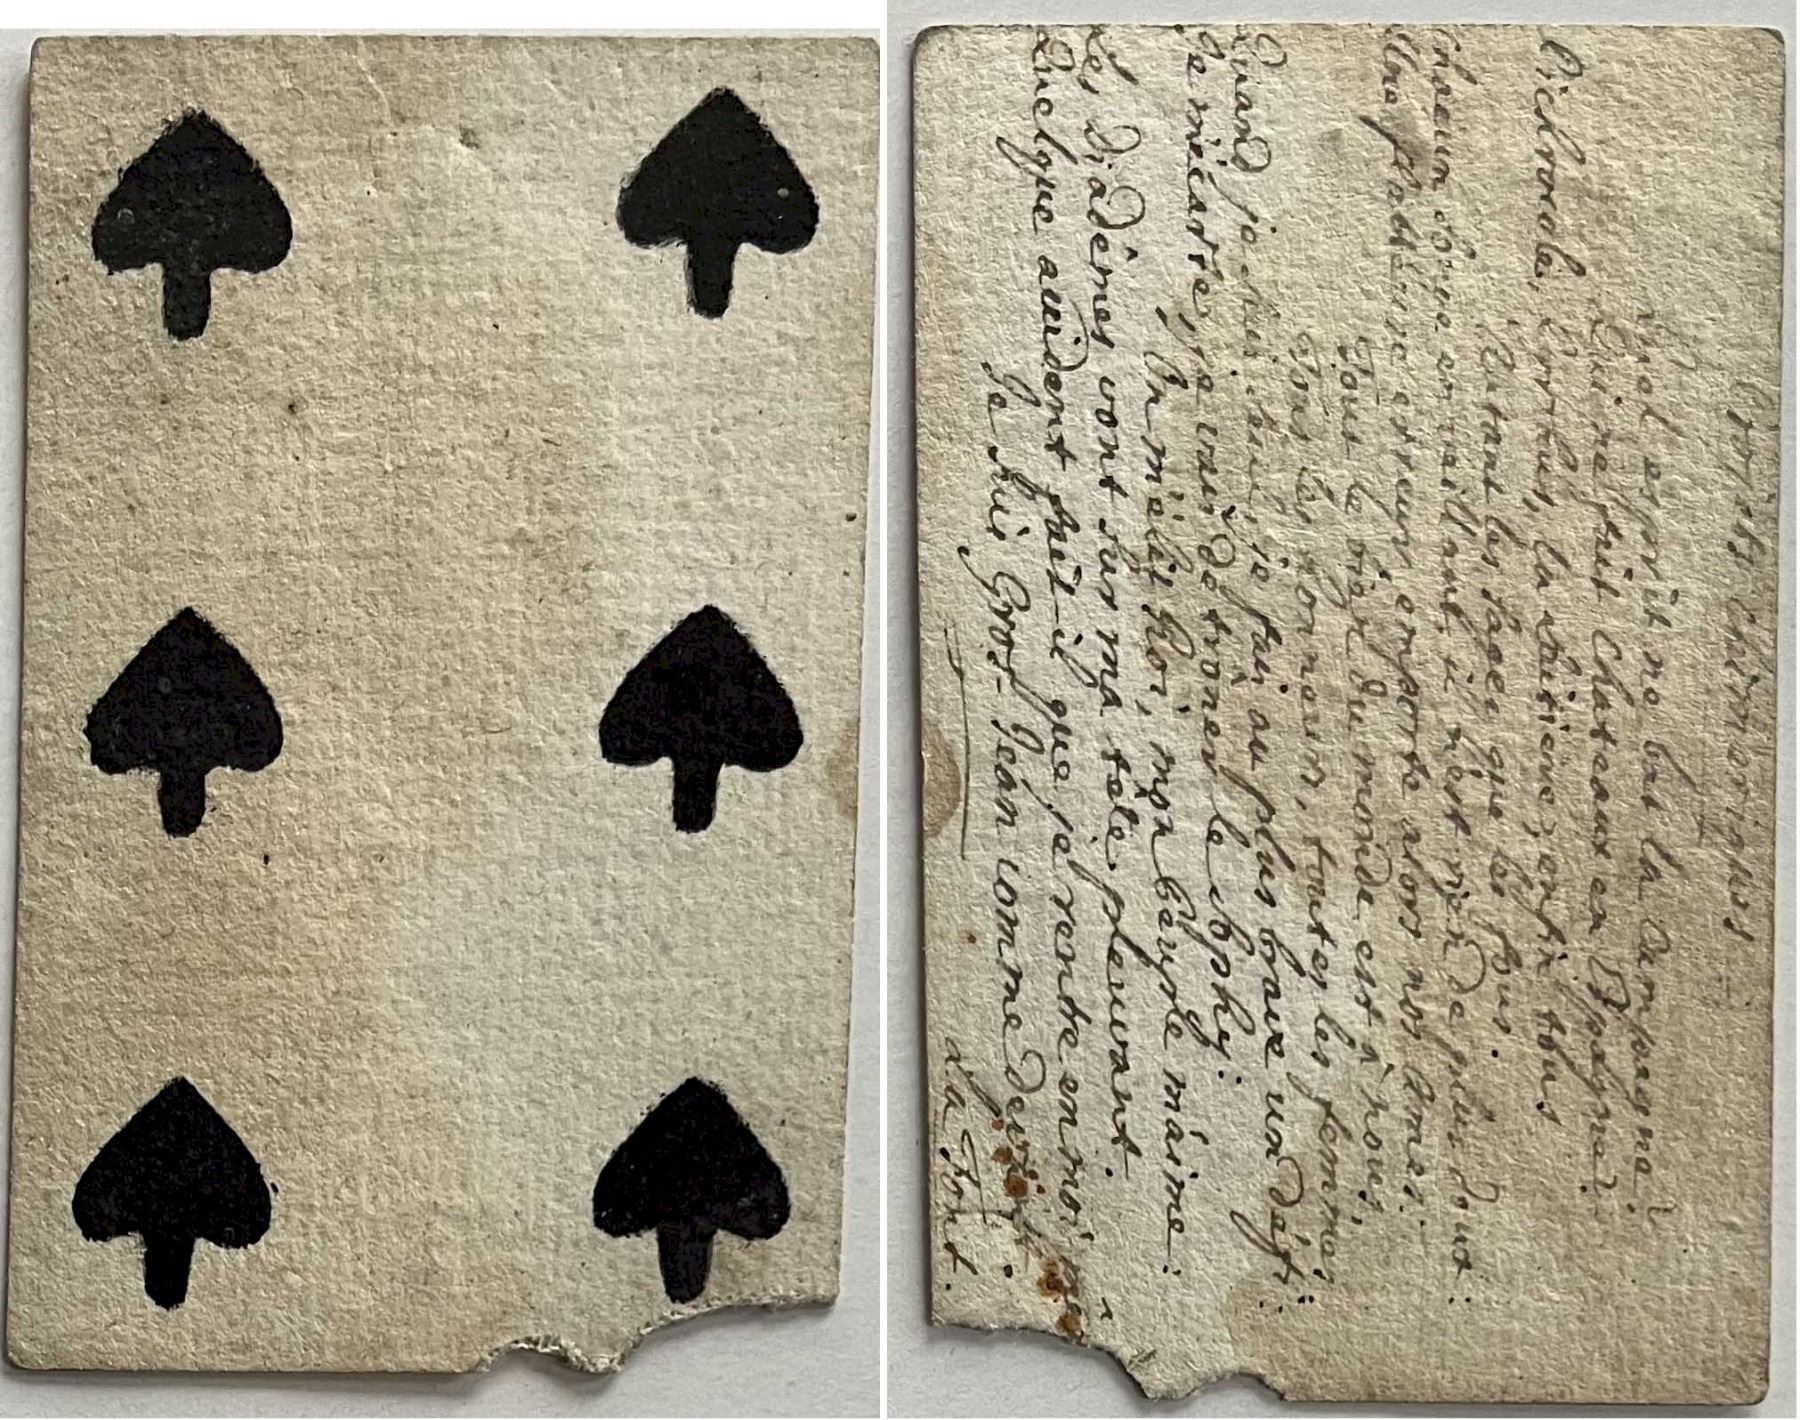 Projets Chimériques =
Quel esprit ne bat la Campagne?
Qui ne fait Chateaux en Espagne?
Pichrocole, Pyrrhus, la laitiere, enfin tous
Autant les sages que les fous.
Chacun songe en veillant, il n'est rien de plus doux:
Une flatteuse erreur emporte alors nos ames:
Tout le bien du monde est à nous,
Tous les honneurs, toutes les femmes;
Quand je suis seul, je fais au plus brave un défi:
Je m'écarte, je vais détroner le Sophy:
On m'élit Roi, mon peuple m'aime:
Les diadêmes vont sur ma tête pleuvant.
Quelque accident fait-il que je rentre en moi
Je suis Gros-Jean comme devant.
La Font.